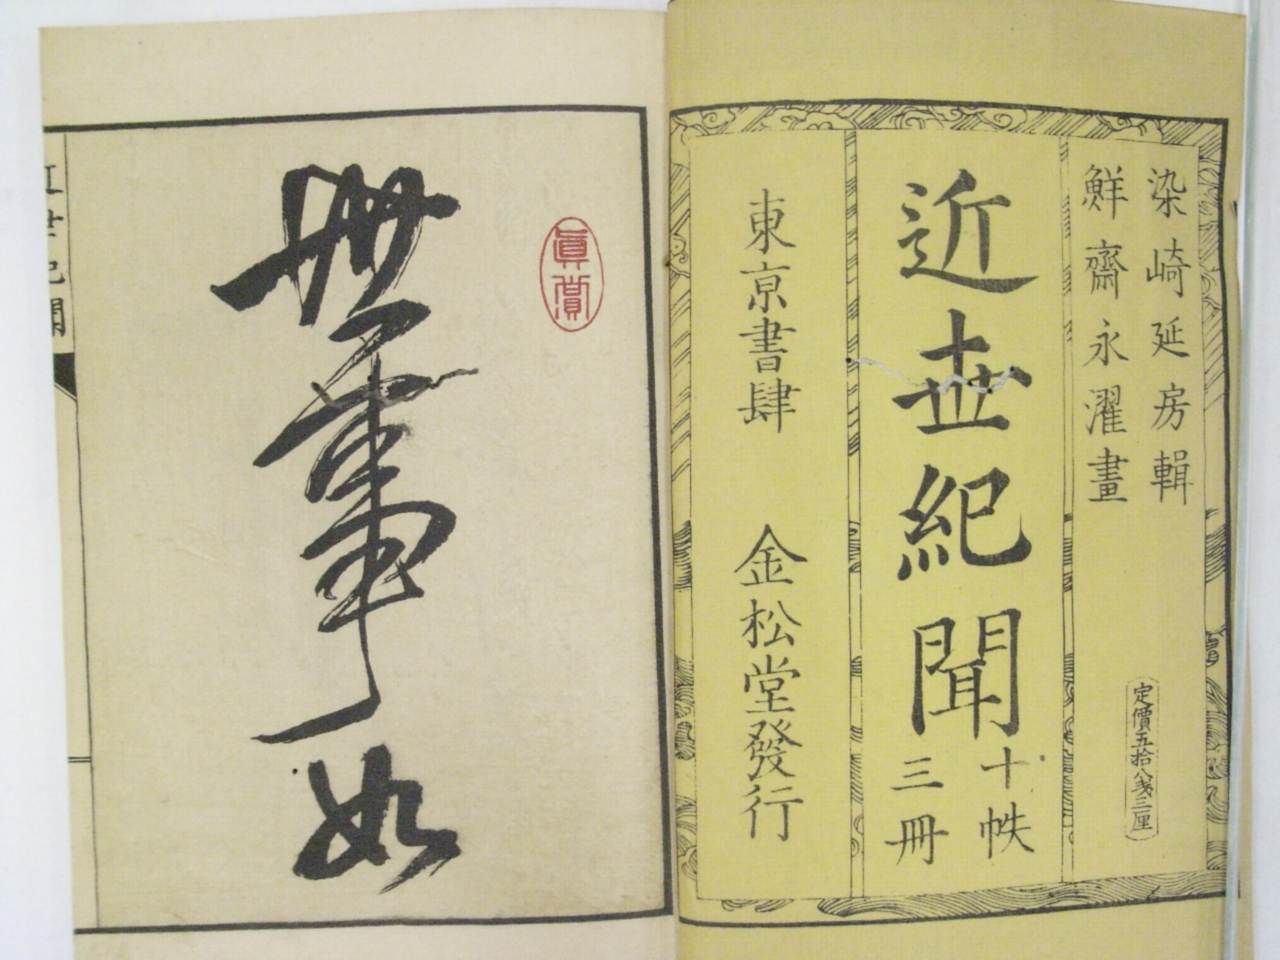 染崎延房輯
鮮齋永濯畫
定價五拾八銭三厘
近世紀聞
十帙
三冊
東京書肆
金松堂發行
眞賞
無事如
近世紀聞